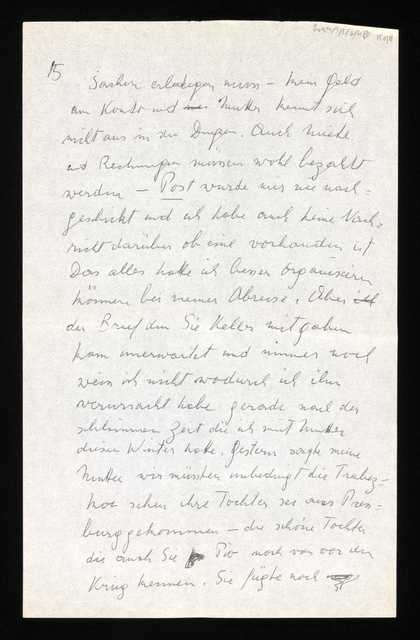 15
Sachen erledigen muss – kein Geld
am Konto und Mutter kennt sich
nicht aus in den Dingen. Auch Miete
und Rechnungen müssen wohl bezahlt
werden – Post wurde mir nie nach=
geschickt und ich habe auch keine Nach=
richt darüber ob eine vorhanden ist
Das alles hätte ich besser organisieren
können bei meiner Abreise. Aber
der Brief den Sie Keller mitgaben
kam unerwartet und immer noch
weiss ich nicht wodurch ich ihn
verursacht habe gerade nach der
schlimmen Zeit die ich mit Mutter
diesen Winter hatte. Gestern sagte meine
Mutter wir müssten unbedingt die
sehen ihre Tochter sei aus Press=
burg gekommen – die schöne Tochter
die auch Sie noch von vor dem
Krieg kennen. Sie fügte noch